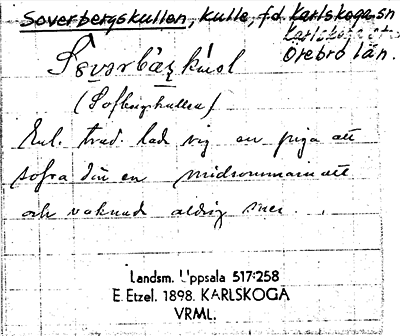 Soverbergskullen, kulle, f.d Karlskoga sn
Karlskoga
Örebro län.
Soverbärskul
(Sofbergskullen)
Enl. trad. lad sig en piga att
sofva där en midsommarnatt
och vaknad aldrig mer. . .
Landsm. Uppsala 517:258
E. Etzel. 1898. KARLSKOGA
VRML.